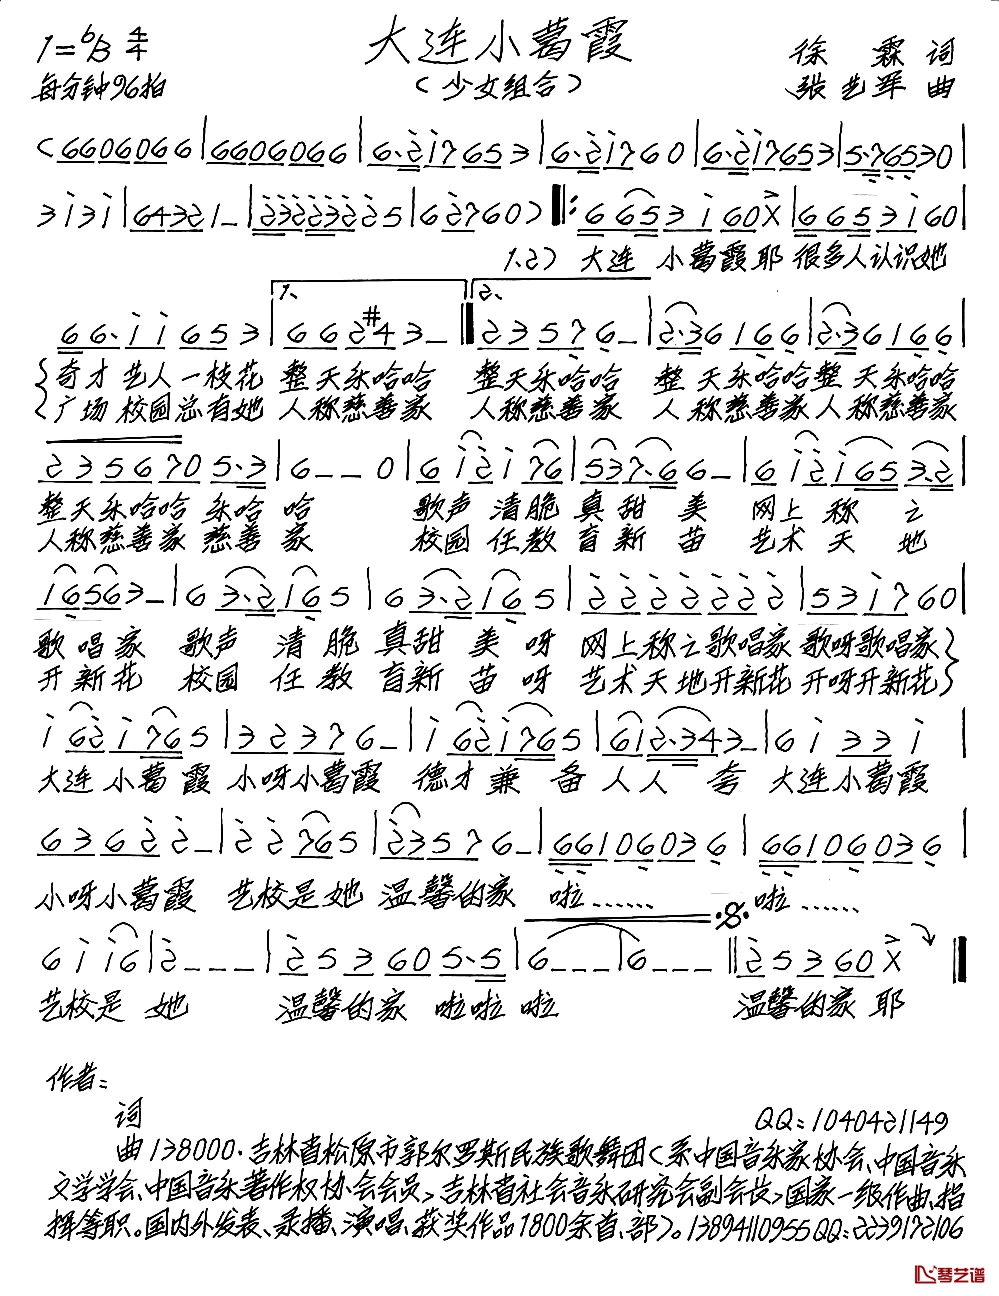 1=bB 4/4
大连小葛霞
徐霖 词
每分钟96拍
(少女组合)
张艺军 曲
(6606066|6606066|6·2i7653|6·2i760|6·2i7653|5·76530|
3i3i|64321_|23223225|62760)‖:6653i60X|6653i60|
1.2) 大连 小葛霞耶 很多人认识她
66·ii653|1.662#43_‖2.23576_|2·36166|2·36166|
奇才 艺人一枝花 整天乐哈哈 整天乐哈哈 整天乐哈哈整天乐哈哈
广场 校园总有她 人称慈善家 人称慈善家 人称慈善家人称慈善家
2356705·3|6__0|6i2i76|537·66_|6i2i653·2|
整天乐哈哈 乐哈 哈 歌声 清脆 真甜 美 网上 称 之
人称慈善家 慈善 家 校园 任教 育新 苗 艺术 天 地
16563_|63·2165|63·2165|2222222|53i760|
歌唱家 歌声 清脆真甜美呀 网上称之歌唱家歌呀歌唱家
开新花 校园 任教育新苗呀 艺术天地开新花开呀开新花
i62i765|323376_|i62i765|6i2·343_|6i33i|
大连小葛霞 小呀小葛霞 德才兼备人人 夸 大连小葛霞
63622_|22765|23576_|66106036|66106036|
小呀小葛霞 艺校是她 温馨的家 啦…… 啦……
6ii6|2___|253605·5|6___|6___‖25360X‖
艺校是 她 温馨的家 啦啦啦 温馨的家 耶
作者:
词 QQ:1040421149
曲138000·吉林省松原市郭尔罗斯民族歌舞团(系中国音乐家协会、中国音乐
文学学会、中国音乐著作权协会会员)吉林省社会音乐研究会副会长)国家一级作曲、指
挥等职。国内外发表、录播、演唱、获奖作品1800余首、部)。13894110955QQ:2239172106
琴艺谱